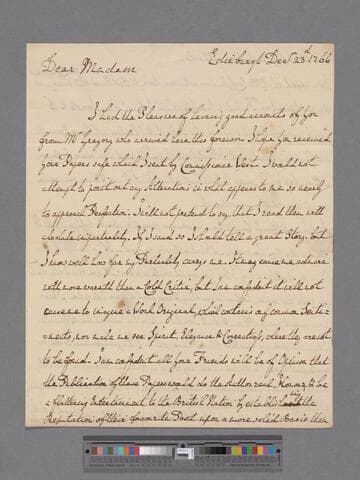 Edinburgh Decr 23d 1766
Dear Madam
I had the Pleasure of hearing good accounts of you
from Mr Gregory who arrived here this forenoon. I hope you received
your Papers safe which I sent by Commissioner West. I would not
attempt to point out any Alterations in what appears to me so nearly
to approach Perfection. I will not pretend to say that I read them with
absolute impartiality. If I said so I should tell a great Story, but
I know well how far my Partiality carrys me. It may cause me admire
with more warmth than a Cold Critic, but I am confident it will not
cause me to imagine a Work Original, which contains only common Senti-
-ments, nor make me see Spirit, Elegance & Correctness, where they are not
to be found. I am confident all your Friends will be of Opinion that
the Publication of these Papers would do the Author real Honour, & be
a flattering Entertainment to the British Nation by establishing the
Reputation of their favourite Poet upon a more solid Basis than